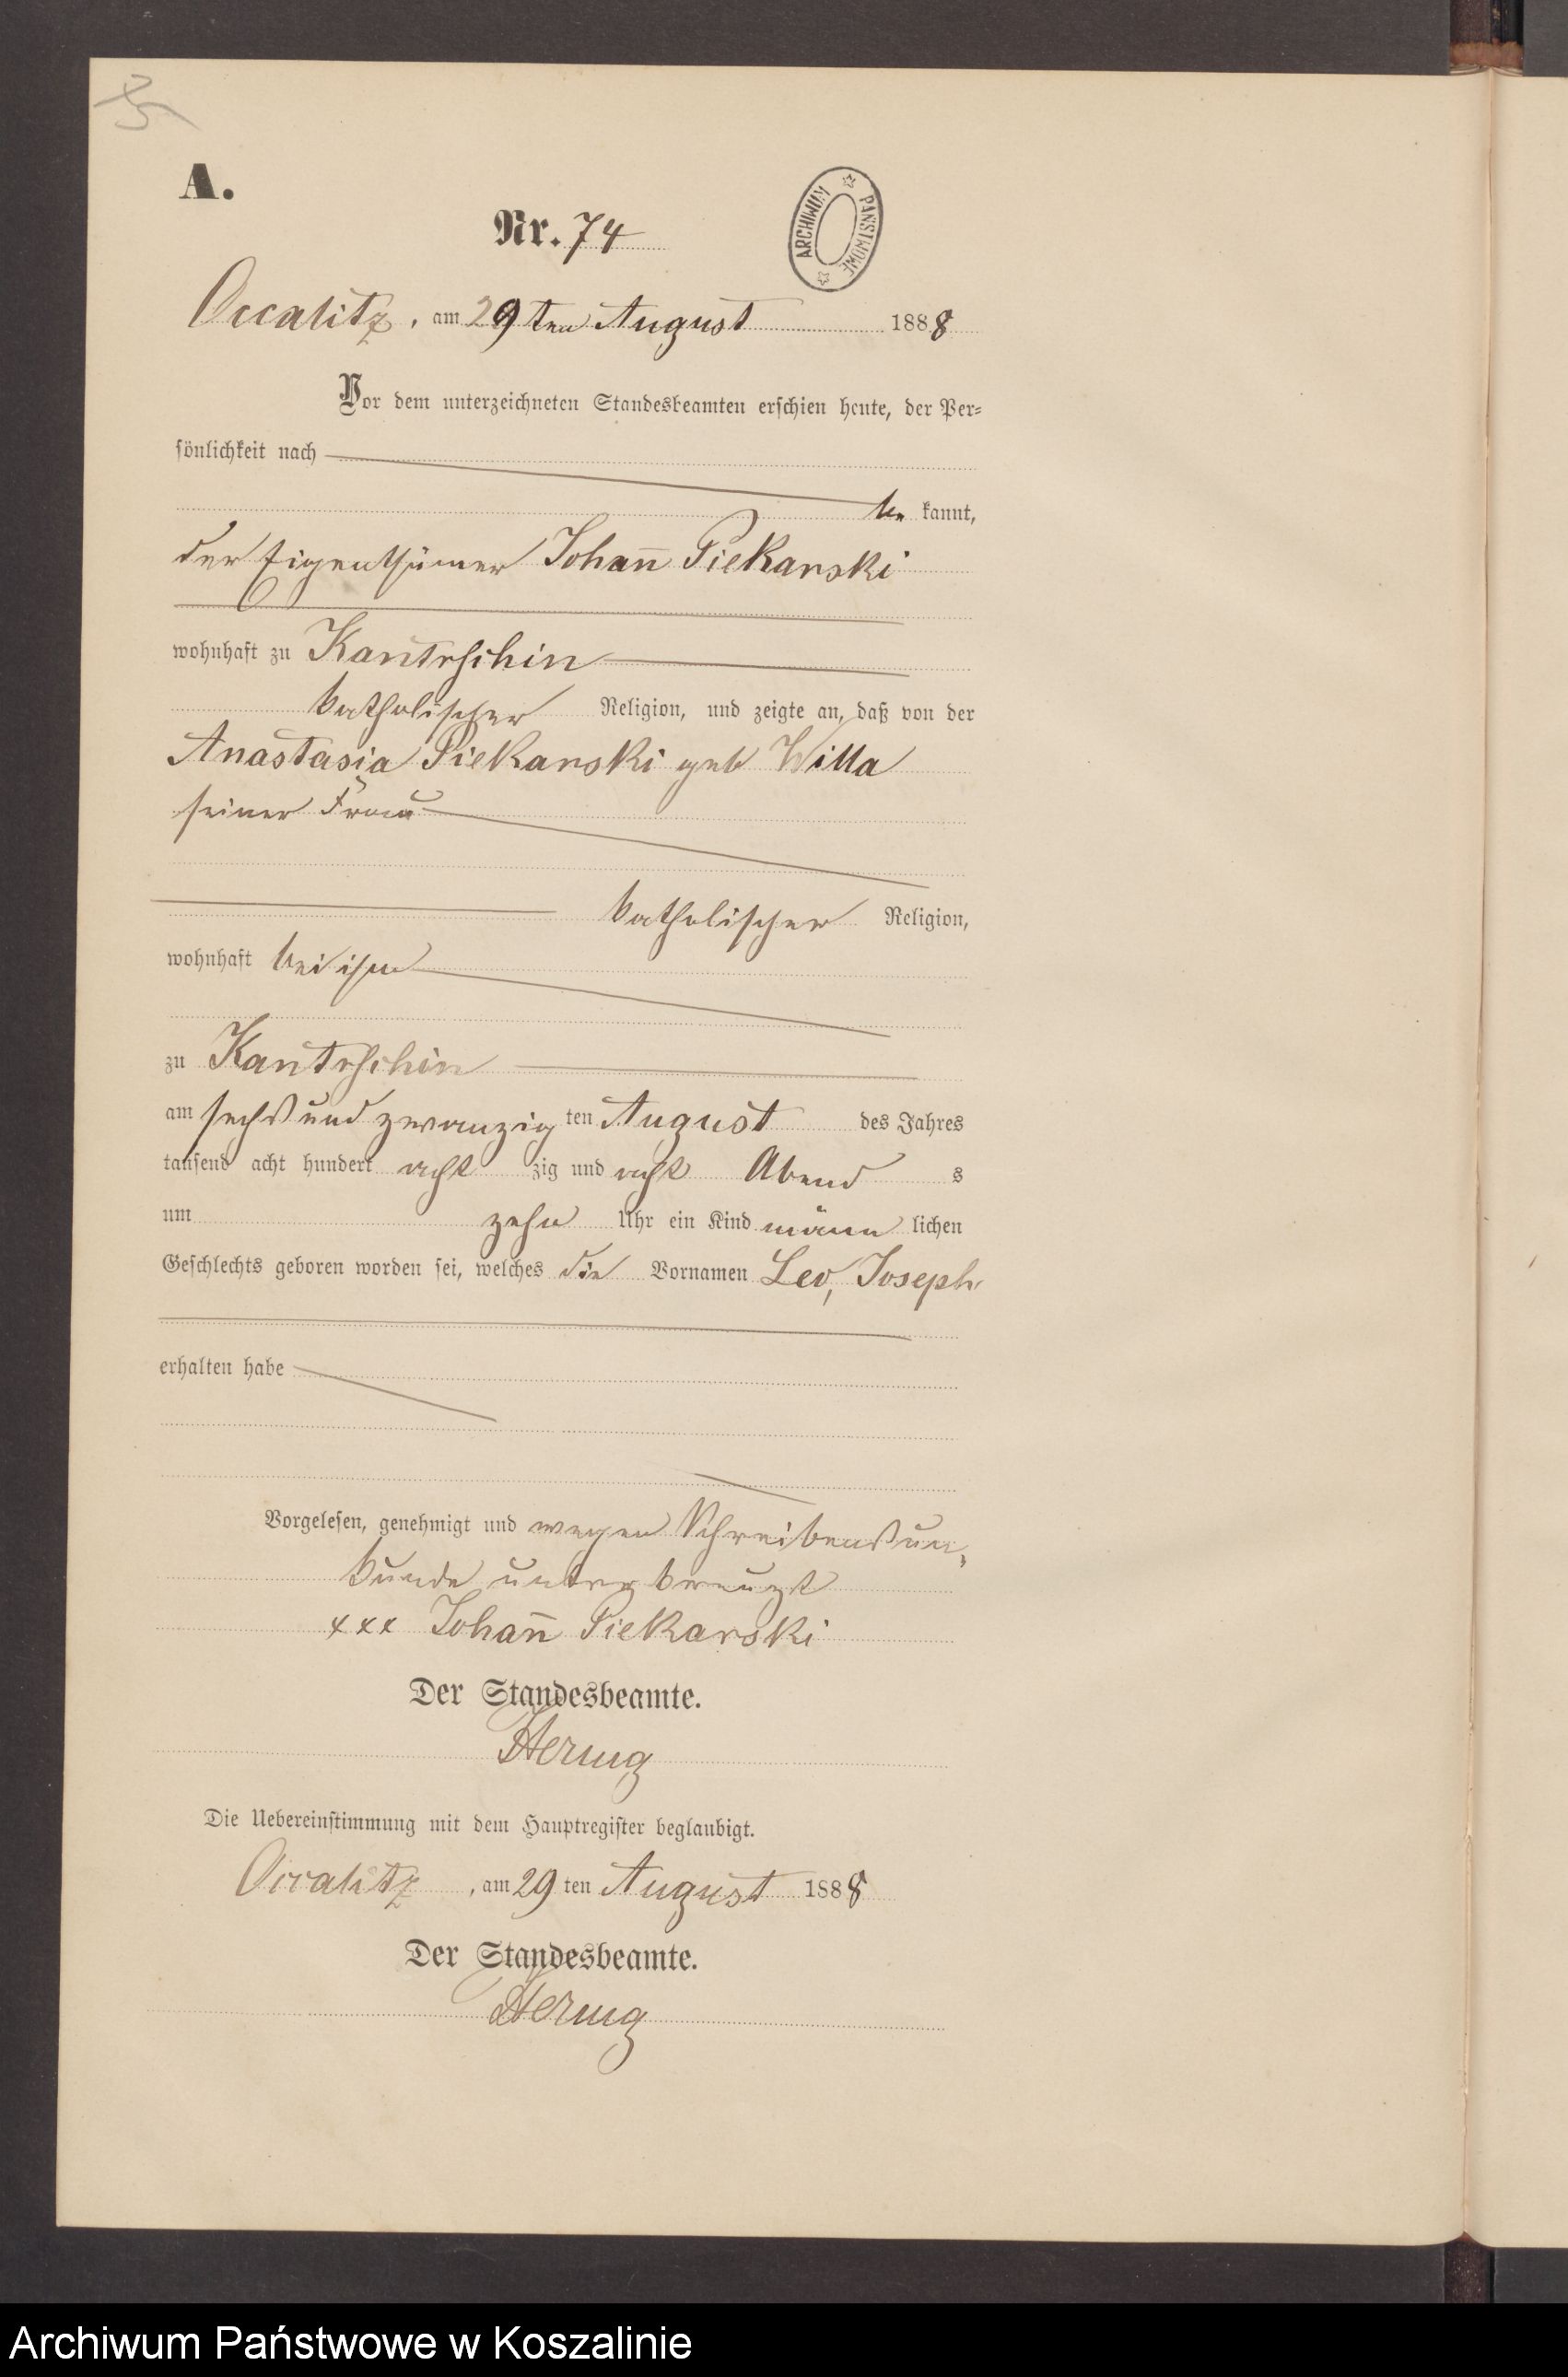 A.
Nr. 74
ARCHIWUM PAŃSTWOWE
Occalitz, am 29ten August 1888
Vor dem unterzeichneten Standesbeamten erschien heute, der Per=
sönlichkeit nach
be kannt,
der Eigenthümer Johan̄ Piekarski
wohnhaft zu Kantrschin
katholischer Religion, und zeigte an, daß von der
Anastasia Piekarski geb Willa
seiner Frau
katholischer Religion,
wohnhaft bei ihm
zu Kantrschin
am sechsundzwanzig ten August des Jahres
tausend acht hundert acht zig und acht Abend s
um zehn Uhr ein Kind männ lichen
Geschlechts geboren worden sei, welches die Vornamen Leo, Joseph
erhalten habe
Vorgelesen, genehmigt und wegen Schreibensun-
kunde unterkreuzt
xxx Johan̄ Piekarski
Der Standesbeamte.
Die Uebereinstimmung mit dem Hauptregister beglaubigt.
Occalitz, am 29 ten August 1888
Der Standesbeamte.
Archiwum Państwowe w Koszalinie